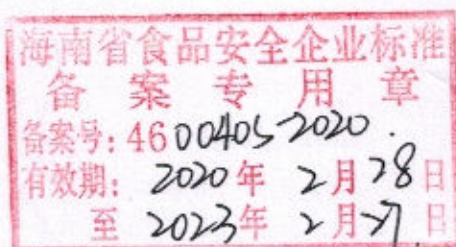 海南省食品安全企业标准
备案专用章
备案号: 4600405-2020.
有效期: 2020年2月28日
至2023年2月27日